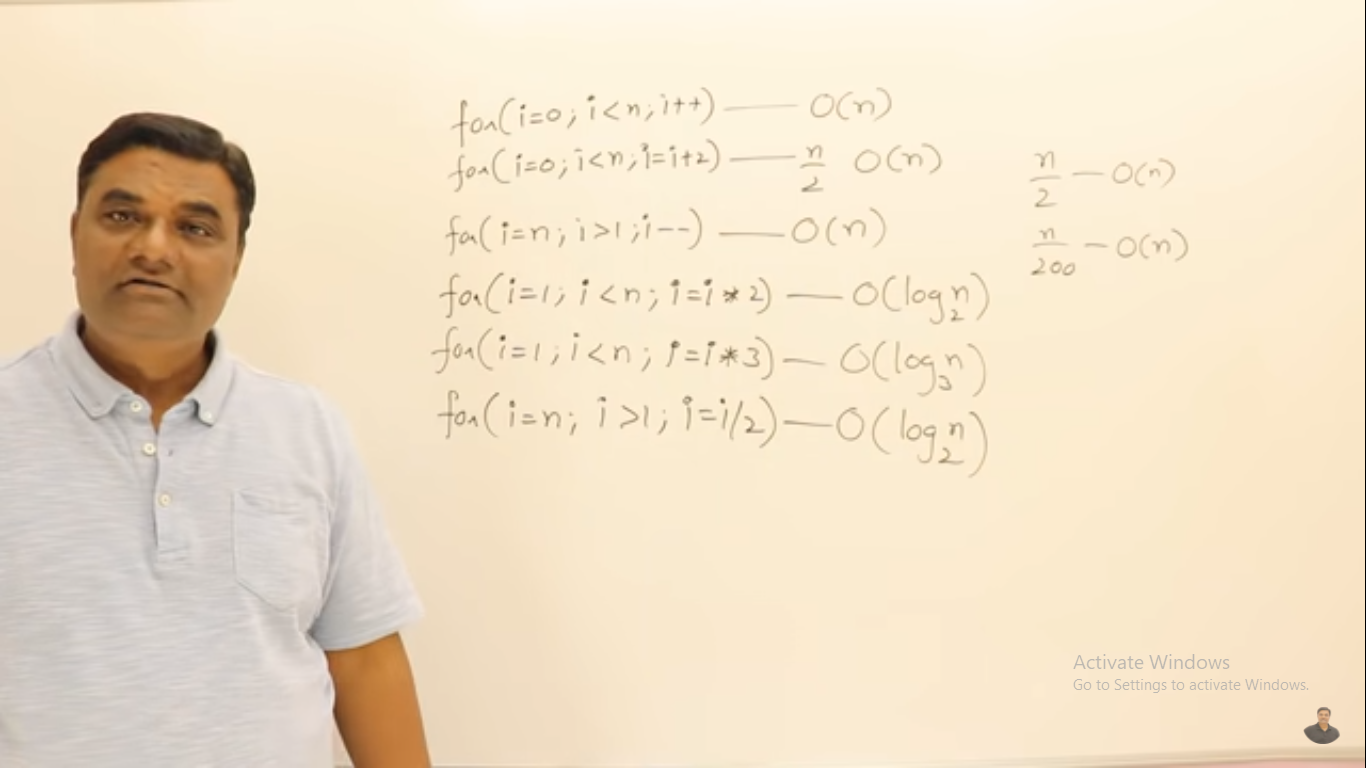 for(i=0; i<n; i++) —— O(n)
for(i=0; i<n; i=i+2) —— n/2 O(n)
n/2 — O(n)
for(i=n; i>1; i--) —— O(n)
n/200 — O(n)
for(i=1; i<n; i=i*2) —— O(log₂n)
for(i=1; i<n; i=i*3) — O(log₃n)
for(i=n; i>1; i=i/2) — O(log₂n)
Activate Windows
Go to Settings to activate Windows.